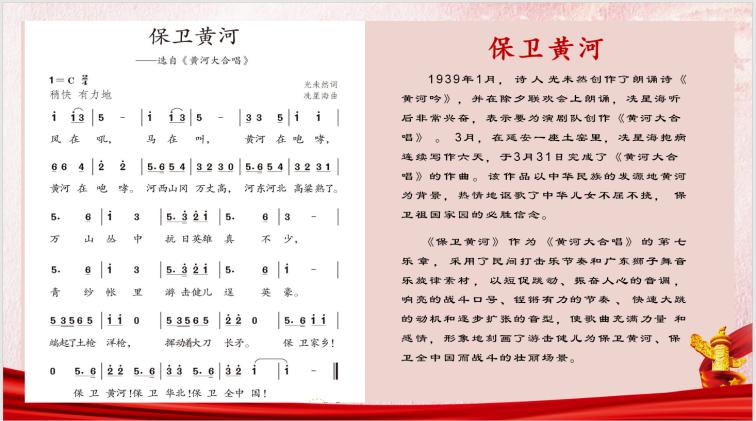 保卫黄河
——选自《黄河大合唱》
1=C 2/4
稍快 有力地
光未然词
冼星海曲
风在吼，马在叫，黄河在咆哮，
黄河在咆哮。河西山冈万丈高，河东河北高粱熟了。
万山丛中抗日英雄真不少，
青纱帐里游击健儿逞英豪。
端起了土枪洋枪，挥动着大刀长矛。保卫家乡！
保卫黄河！保卫华北！保卫全中国！
保卫黄河
1939年1月，诗人光未然创作了朗诵诗《
黄河吟》，并在除夕联欢会上朗诵，冼星海听
后非常兴奋，表示要为演剧队创作《黄河大合
唱》。3月，在延安一座土窑里，冼星海抱病
连续写作六天，于3月31日完成了《黄河大合
唱》的作曲。该作品以中华民族的发源地黄河
为背景，热情地讴歌了中华儿女不屈不挠，保
卫祖国家园的必胜信念。
《保卫黄河》作为《黄河大合唱》的第七
乐章，采用了民间打击乐节奏和广东狮子舞音
乐旋律素材，以短促跳动、振奋人心的音调，
响亮的战斗口号、铿锵有力的节奏、快速大跳
的动机和逐步扩张的音型，使歌曲充满力量和
感情，形象地刻画了游击健儿为保卫黄河、保
卫全中国而战斗的壮丽场景。